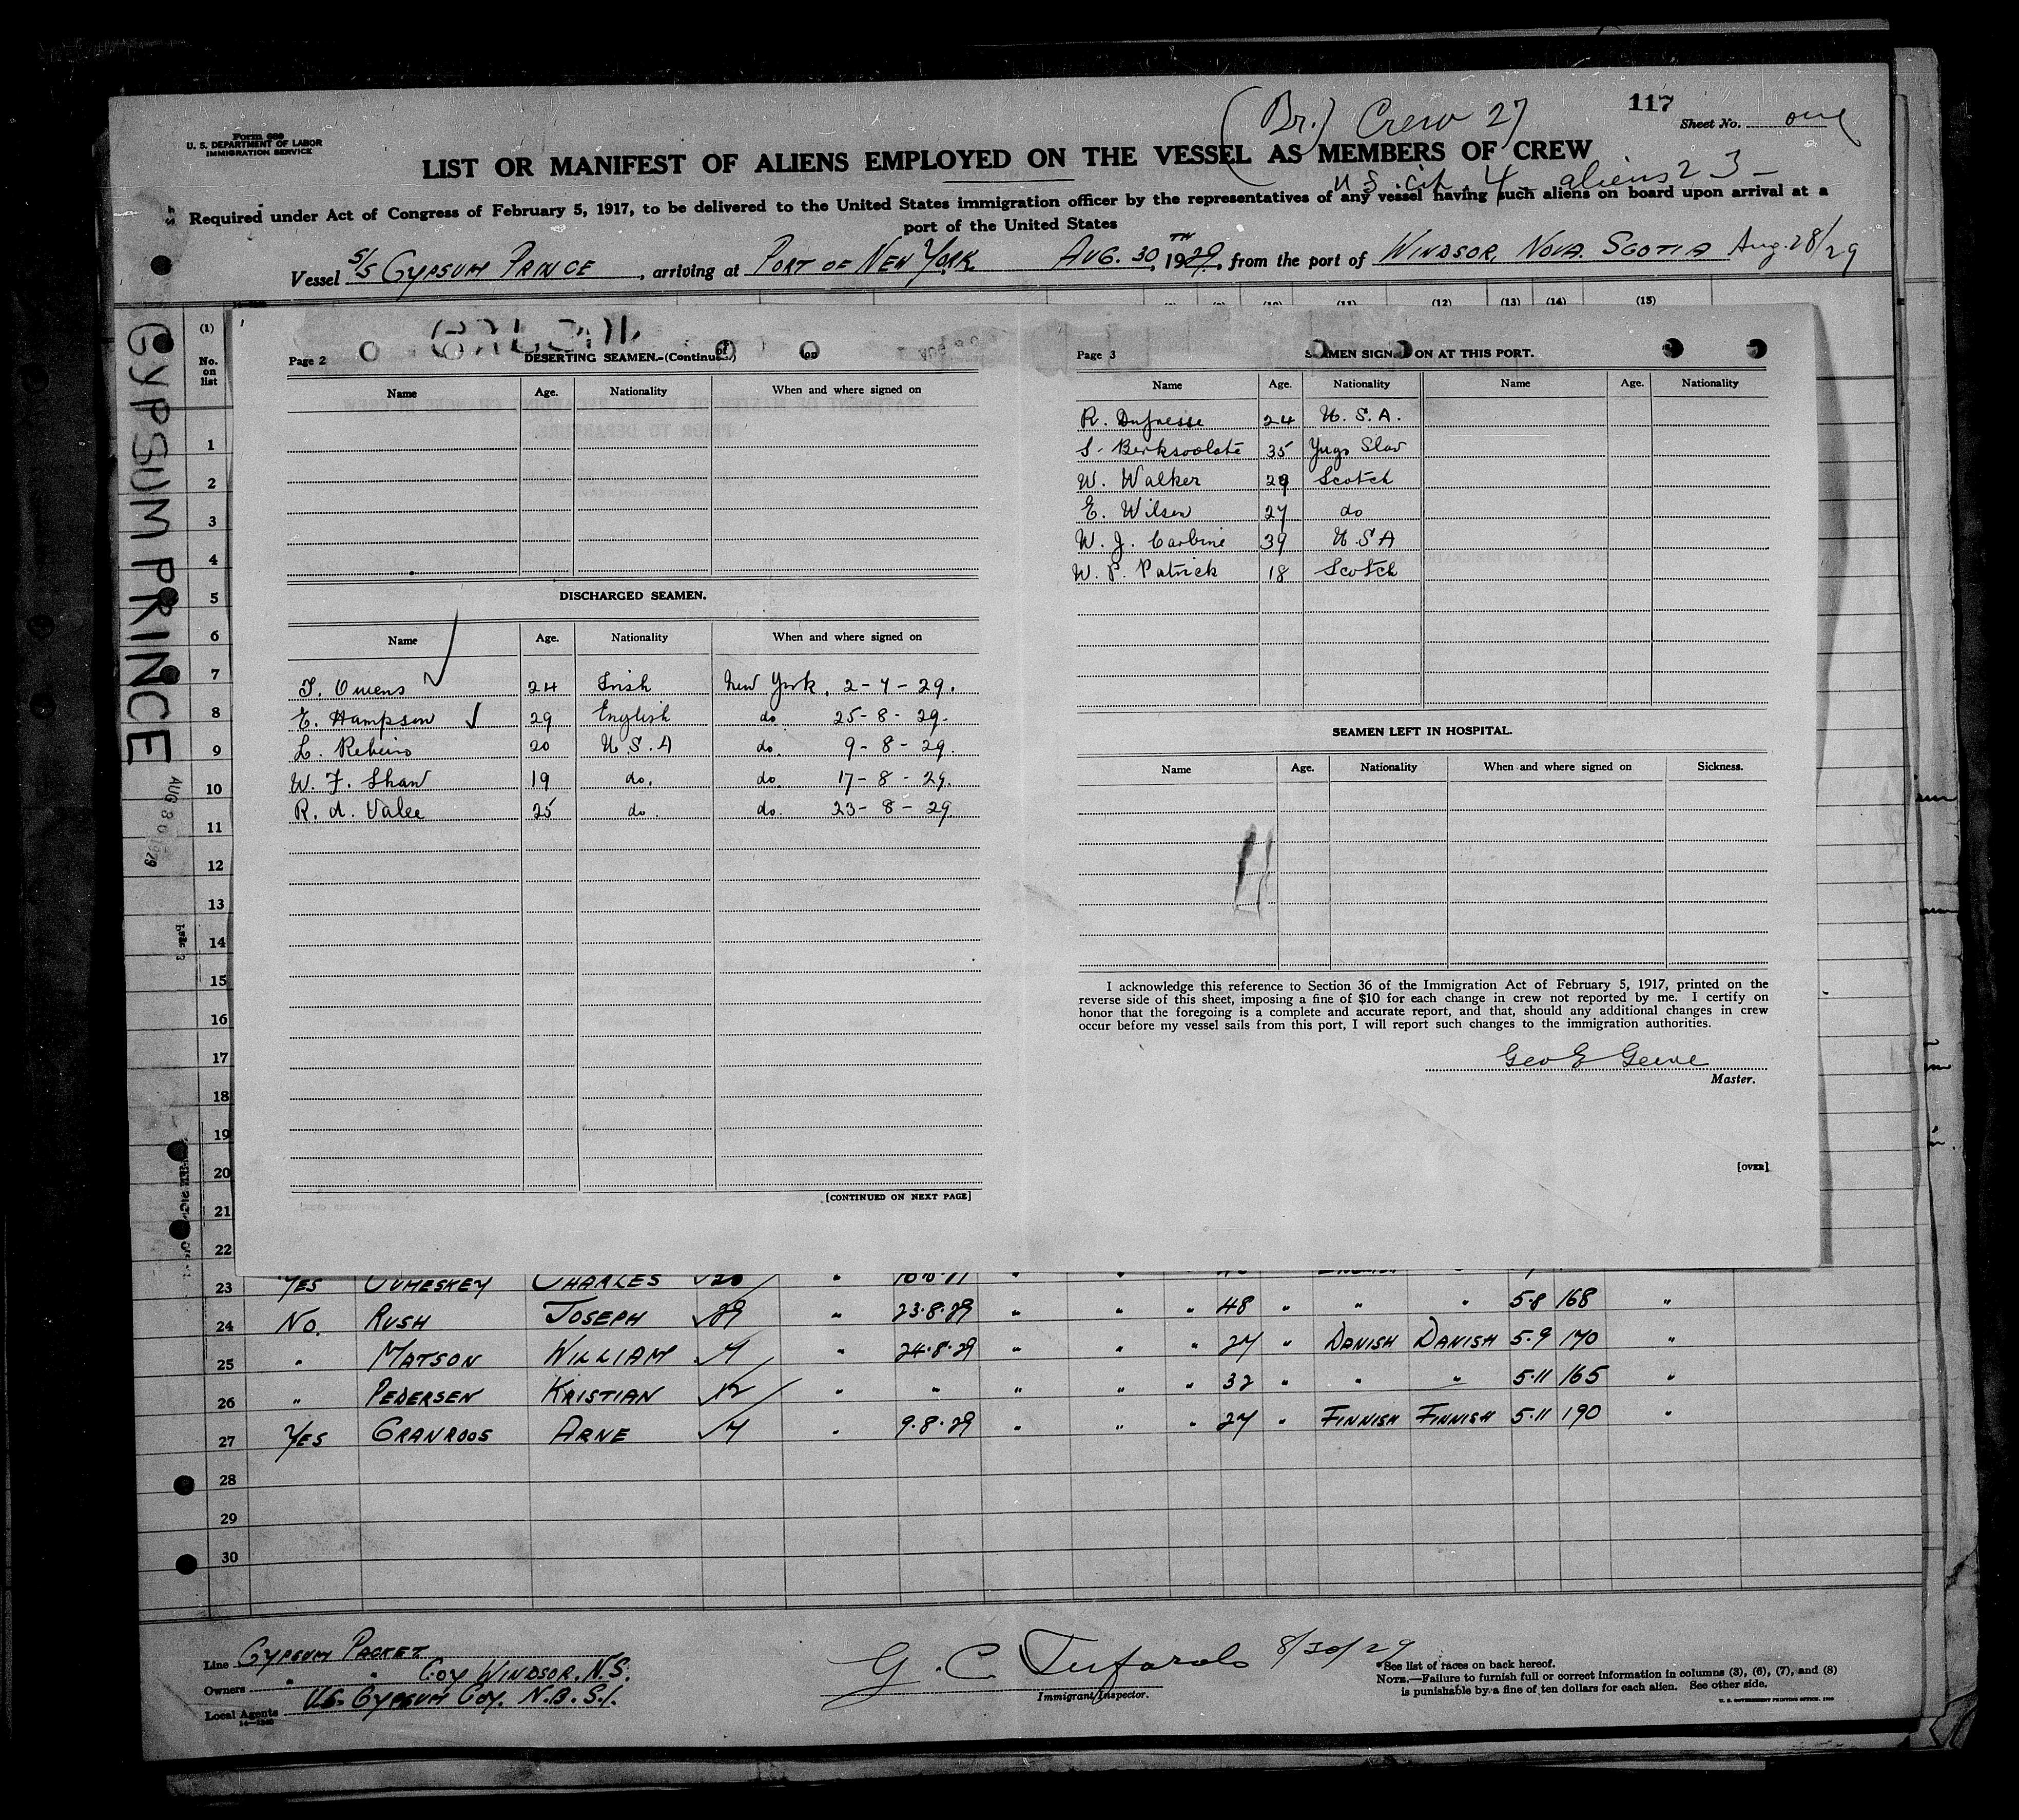 117
Form 680
U. S. DEPARTMENT OF LABOR
IMMIGRATION SERVICE
(Br.) Crew 27
Sheet No. one
LIST OR MANIFEST OF ALIENS EMPLOYED ON THE VESSEL AS MEMBERS OF CREW
U S cit. 4 aliens 23
Required under Act of Congress of February 5, 1917, to be delivered to the United States immigration officer by the representatives of any vessel having such aliens on board upon arrival at a
port of the United States
Vessel S/S GYPSUM PRINCE, arriving at PORT OF NEW YORK AUG. 30TH, 1929, from the port of WINDSOR, NOVA SCOTIA Aug. 28/29
(11) (12) (13) (14) (15)
GYPSUM PRINCE
AUG 30 1929
(1)
No. on list
1
2
3
4
5
6
7
8
9
10
11
12
13
14
15
16
17
18
19
20
21
22
Page 2
DESERTING SEAMEN.—(Continued)
Name Age. Nationality When and where signed on
DISCHARGED SEAMEN.
Name Age. Nationality When and where signed on
T. Owens 24 Irish New York. 2-7-29.
E. Hampson 29 English do 25-8-29.
L. Rebeiro 20 U.S.A do. 9-8-29.
W. F. Shaw 19 do. do 17-8-29.
R. A. Valee 25 do. do. 23-8-29
[CONTINUED ON NEXT PAGE]
Page 3
SEAMEN SIGNED ON AT THIS PORT.
Name Age. Nationality Name Age. Nationality
R. Dufresse 24 U.S.A.
S. Berksoolate 35 Yugo Slav
W. Walker 29 Scotch
E. Wilson 27 do
W. J. Carbine 39 U S A
W. P. Patrick 18 Scotch
SEAMEN LEFT IN HOSPITAL.
Name Age. Nationality When and where signed on Sickness.
I acknowledge this reference to Section 36 of the Immigration Act of February 5, 1917, printed on the
reverse side of this sheet, imposing a fine of $10 for each change in crew not reported by me. I certify on
honor that the foregoing is a complete and accurate report, and that, should any additional changes in crew
occur before my vessel sails from this port, I will report such changes to the immigration authorities.
Geo E
Master.
[OVER]
23 YES CHARLES
24 No. RUSH JOSEPH 29 " 23.8.29 " " " 48 " " " 5.8 168 "
25 " MATSON WILLIAM " 24.8.29 " " " 27 " DANISH DANISH 5.9 170 "
26 " PEDERSEN KRISTIAN 12 " " " " " 32 " " " 5.11 165 "
27 YES GRANROOS ARNE " 9.8.29 " " " 27 " FINNISH FINNISH 5.11 190 "
28
29
30
Line GYPSUM PACKET
Owners " " COY WINDSOR, N.S.
Local Agents U.S. GYPSUM COY. N.B.S.I.
14-1240
G. C. 8/30/29
Immigrant Inspector.
*See list of races on back hereof.
NOTE.—Failure to furnish full or correct information in columns (3), (6), (7), and (8)
is punishable by a fine of ten dollars for each alien. See other side.